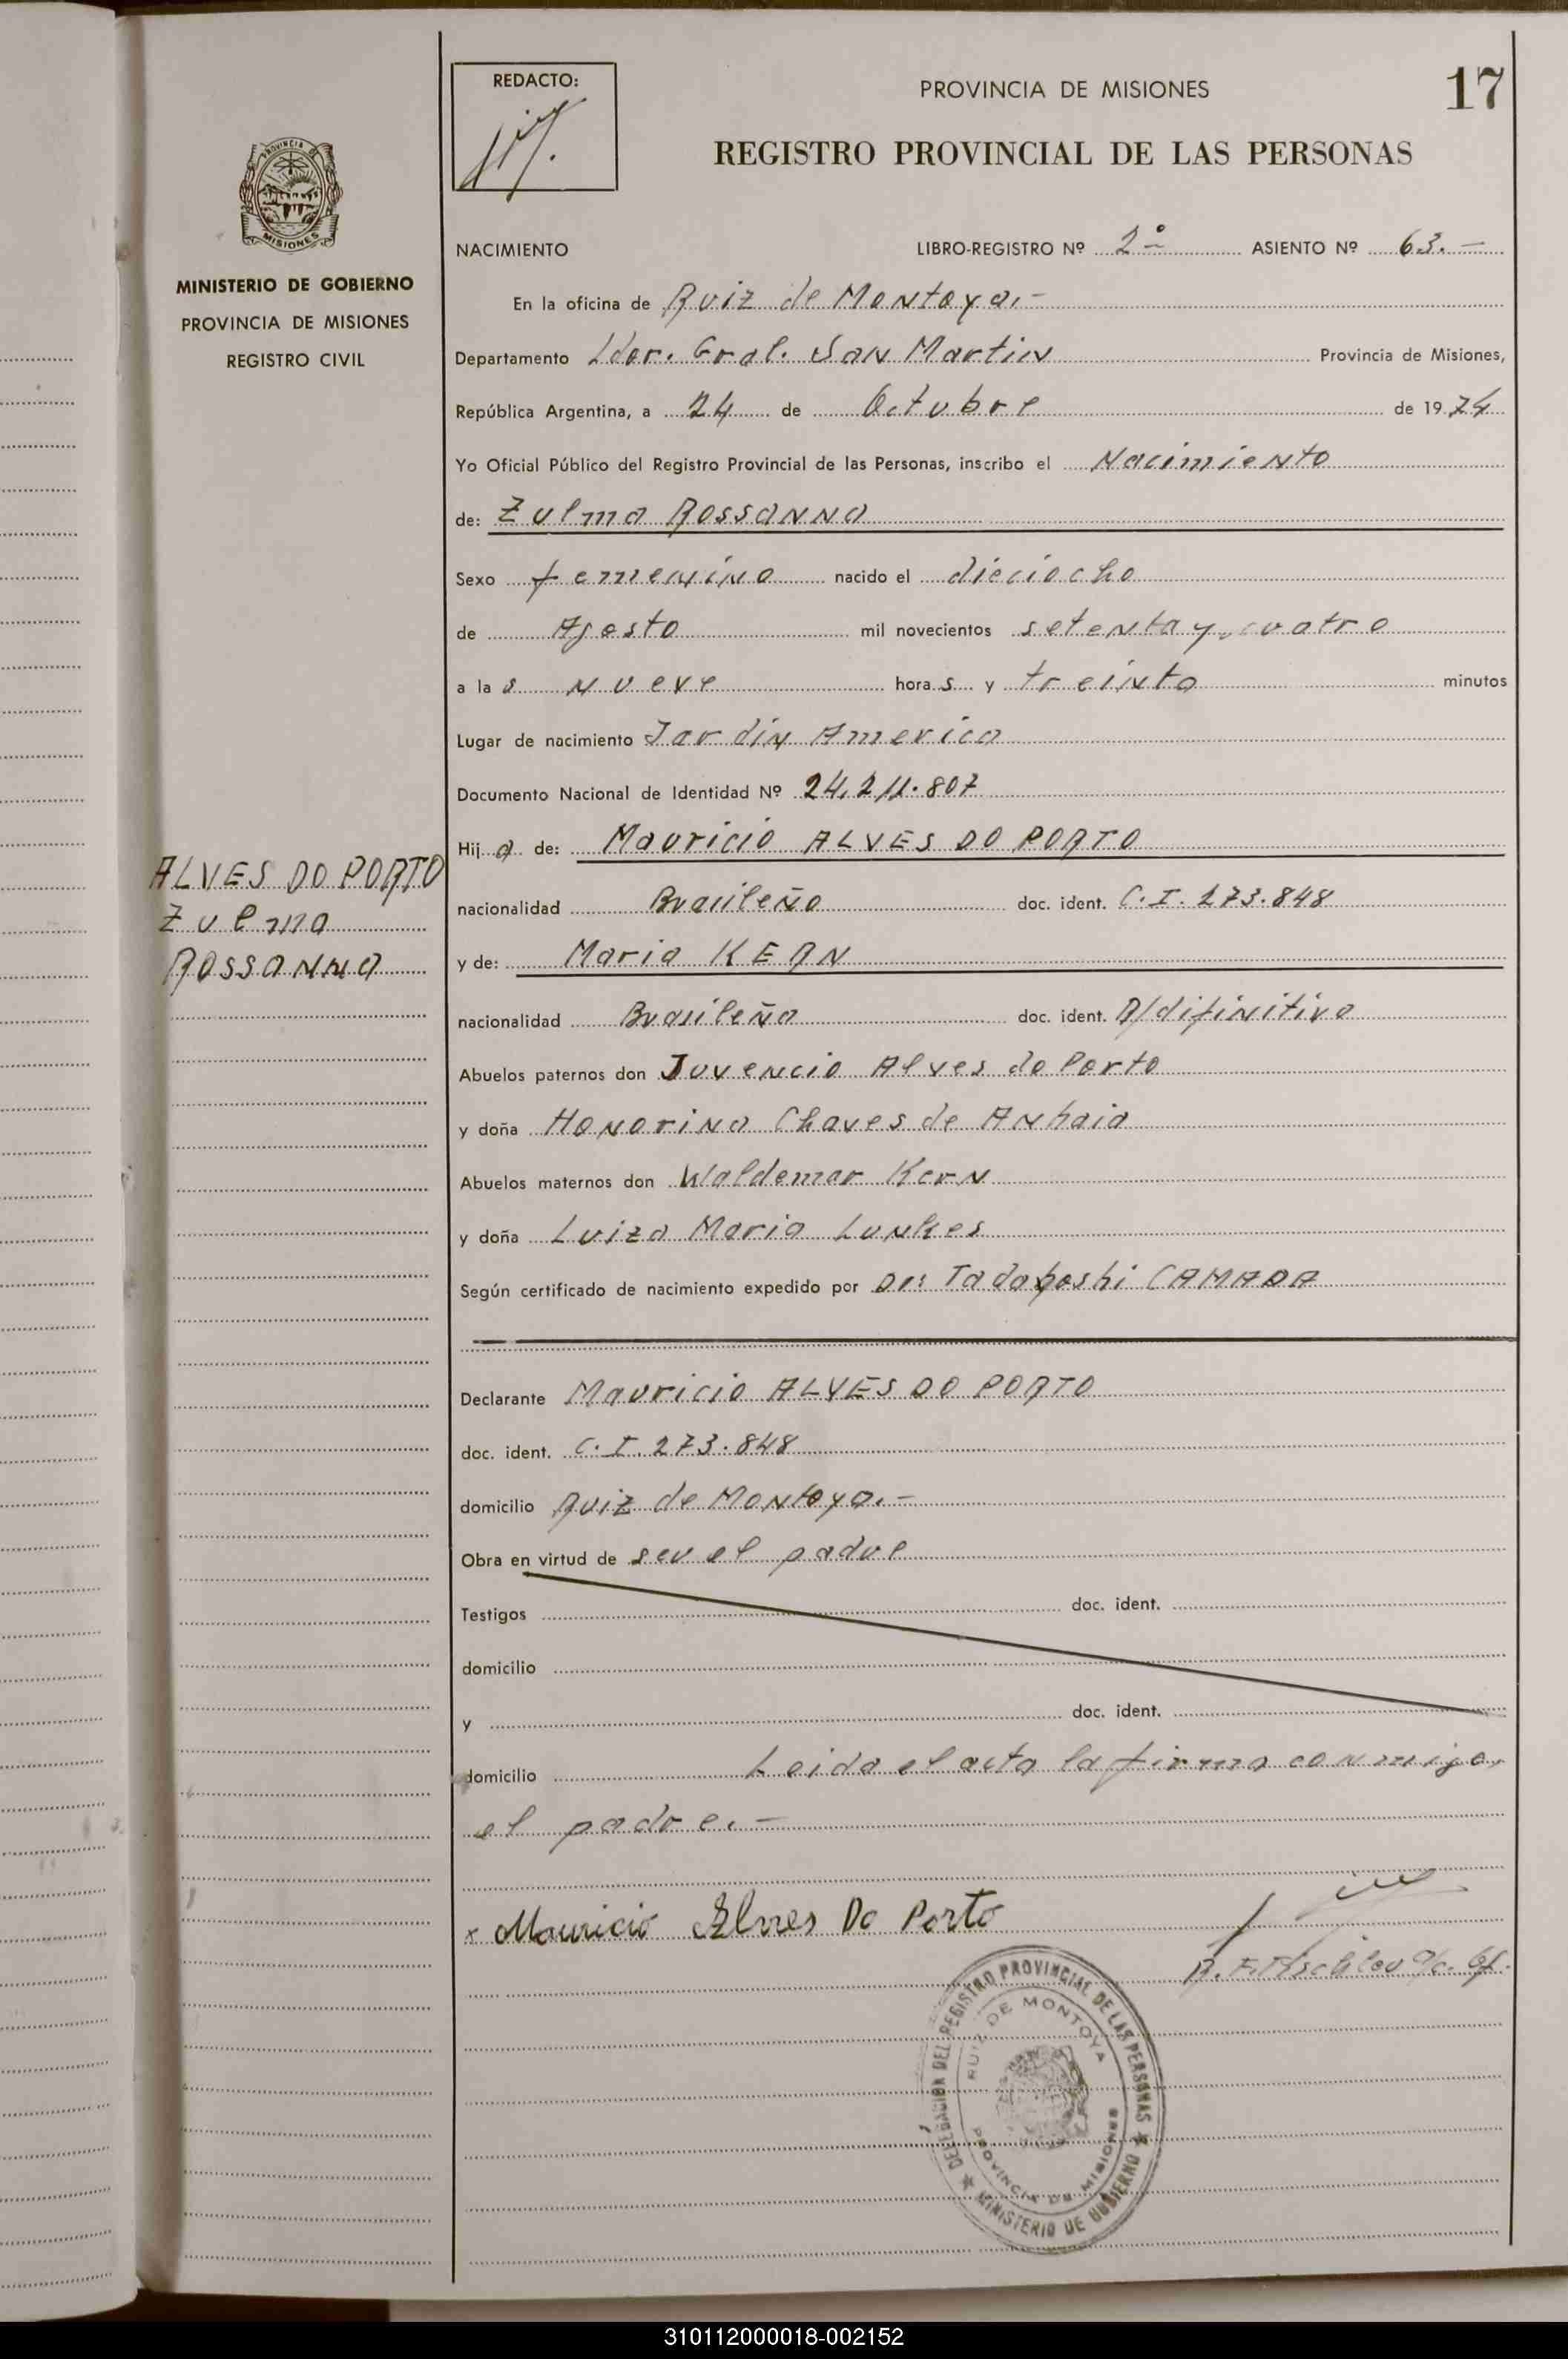 REDACTO:
PROVINCIA DE MISIONES
17
REGISTRO PROVINCIAL DE LAS PERSONAS
PROVINCIA DE
MISIONES
MINISTERIO DE GOBIERNO
PROVINCIA DE MISIONES
REGISTRO CIVIL
NACIMIENTO LIBRO-REGISTRO Nº 2º ASIENTO Nº 63.-
En la oficina de Ruiz de Montoya.-
Departamento Ldor. Gral. San Martin Provincia de Misiones,
República Argentina, a 24 de Octubre de 1974
Yo Oficial Público del Registro Provincial de las Personas, inscribo el Nacimiento
de: Zulma Rossanna
Sexo femenino nacido el dieciocho
de Agosto mil novecientos setenta y cuatro
a las nueve horas y treinta minutos
Lugar de nacimiento Jardin America
Documento Nacional de Identidad Nº 24.211.807
Hija de: Mauricio ALVES DO PORTO
nacionalidad Brasileño doc. ident. C.I. 273.848
y de: Maria KERN
nacionalidad Brasileña doc. ident. R/difinitiva
Abuelos paternos don Juvencio Alves do Porto
y doña Honorina Chaves de Anhaia
Abuelos maternos don Waldemar Kern
y doña Luiza Maria Lunkes
Según certificado de nacimiento expedido por Dr: CAMADA
ALVES DO PORTO
Zulma
Rossanna
Declarante Mauricio ALVES DO PORTO
doc. ident. C.I. 273.848
domicilio Ruiz de Montoya.-
Obra en virtud de ser el padre
Testigos doc. ident.
domicilio
y doc. ident.
domicilio Leida el acta la firma conmigo,
el padre.-
x Mauricio Alves Do Porto
DELEGACION DEL REGISTRO PROVINCIAL DE LAS PERSONAS
RUIZ DE MONTOYA
PROVINCIA DE MISIONES
MINISTERIO DE GOBIERNO
310112000018-002152